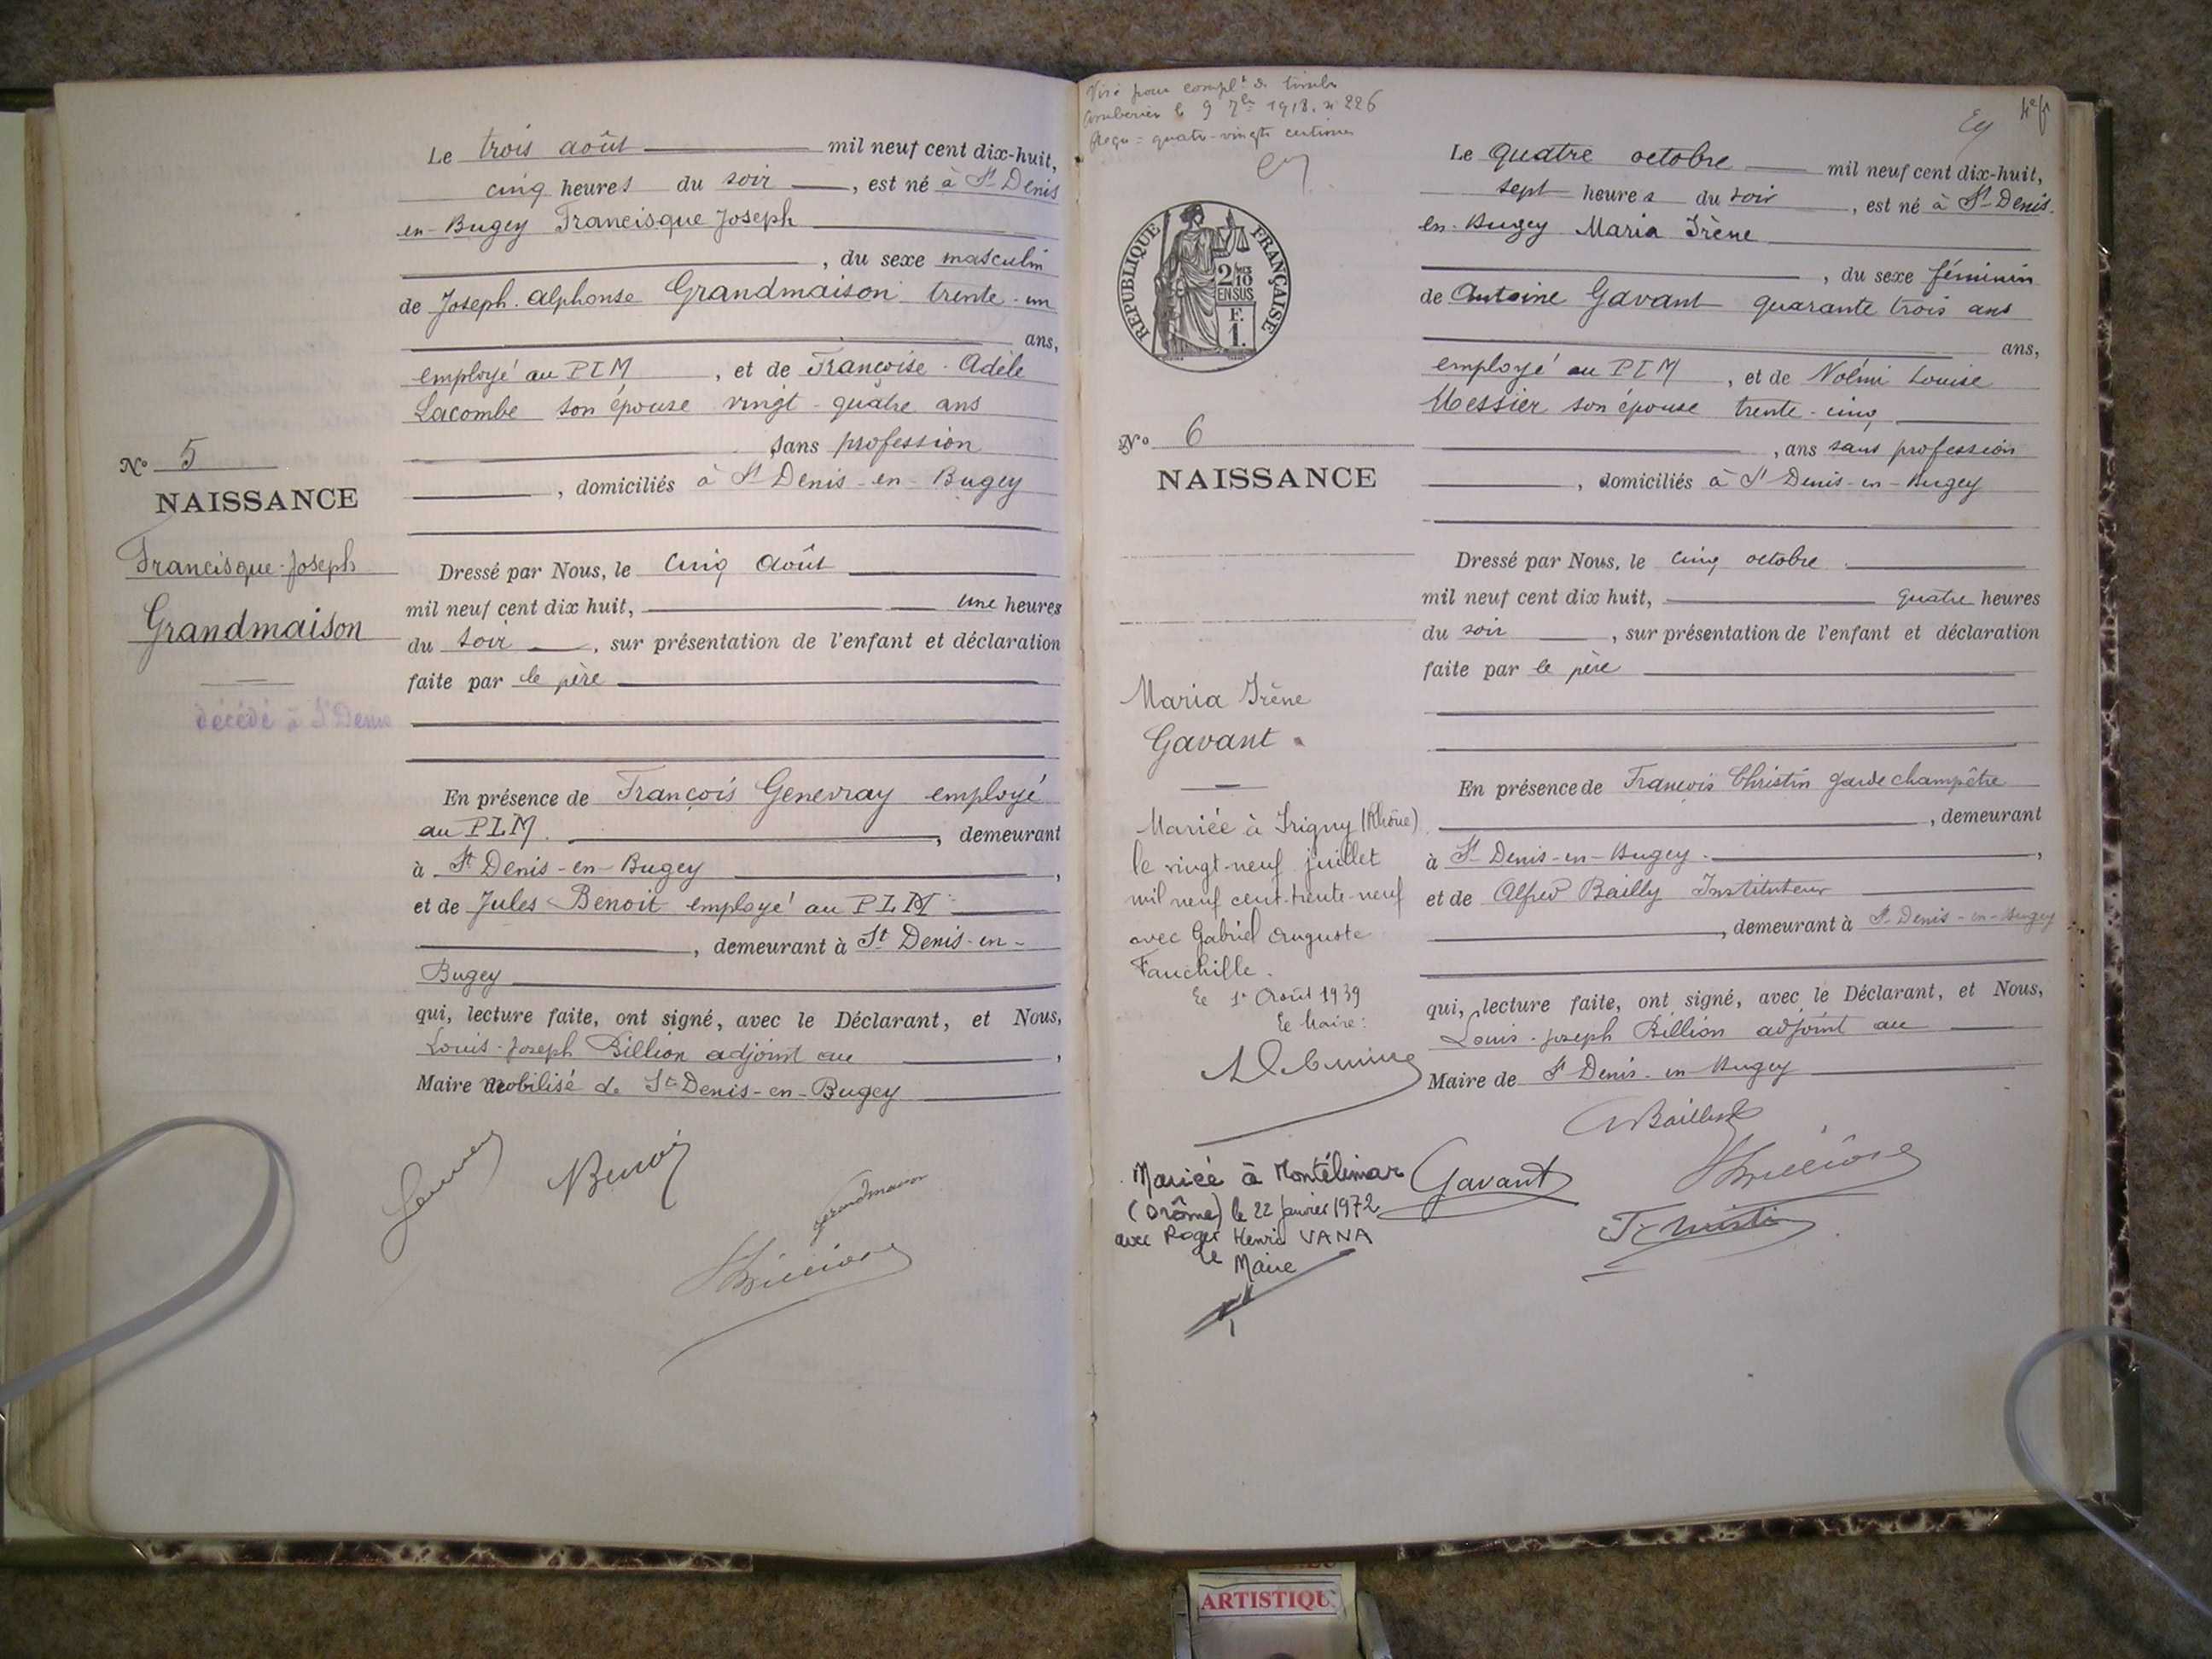 Le trois août mil neuf cent dix-huit,
cinq heures du soir, est né à St Denis
en-Bugey Francisque Joseph
, du sexe masculin
de Joseph-Alphonse Grandmaison trente-un
ans,
employé au PLM, et de Françoise-Adèle
Lacombe son épouse vingt-quatre ans
sans profession
, domiciliés à St Denis-en-Bugey
N° 5
NAISSANCE
Francisque-Joseph
Grandmaison
décédé à St Denis
Dressé par Nous, le cinq août
mil neuf cent dix huit, une heures
du soir, sur présentation de l'enfant et déclaration
faite par le père
En présence de François Genevray employé
au PLM., demeurant
à St Denis-en-Bugey,
et de Jules Benoit employé au PLM
, demeurant à St Denis-en-
Bugey
qui, lecture faite, ont signé, avec le Déclarant, et Nous,
Louis-Joseph Billion adjoint au,
Maire mobilisé de St Denis-en-Bugey
Benoit
Grandmaison
Visé pour complt de timbre
Ambérieu le 9 7bre 1918. n 226
Reçu = quatre-vingts centimes
RÉPUBLIQUE FRANÇAISE
2/10 MES
EN SUS
F.
1.
N° 6
NAISSANCE
Maria Irène
Gavant
Mariée à Irigny (Rhône)
le vingt-neuf juillet
mil neuf cent-trente-neuf
avec Gabriel Auguste
Fauchille.
Le 1er Août 1939
Le Maire:
Mariée à Montélimar
(Drôme) le 22 Janvier 1972
avec Roger Henri VANA
Le Maire
Le quatre octobre mil neuf cent dix-huit,
sept heures du soir, est né à St-Denis-
en-Bugey Maria Irène
, du sexe féminin
de Antoine Gavant quarante trois ans
ans,
employé au PLM, et de Noémi Louise
Messier son épouse trente-cinq
, ans sans profession
, domiciliés à St Denis-en-Bugey
Dressé par Nous, le cinq octobre
mil neuf cent dix huit, quatre heures
du soir, sur présentation de l'enfant et déclaration
faite par le père
En présence de François Christin garde champêtre
, demeurant
à St Denis-en-Bugey.,
et de Alfred Bailly Instituteur
, demeurant à St-Denis-en-Bugey
qui, lecture faite, ont signé, avec le Déclarant, et Nous,
Louis-Joseph Billion adjoint au
Maire de St Denis-en Bugey
Gavant
ARTISTIQU